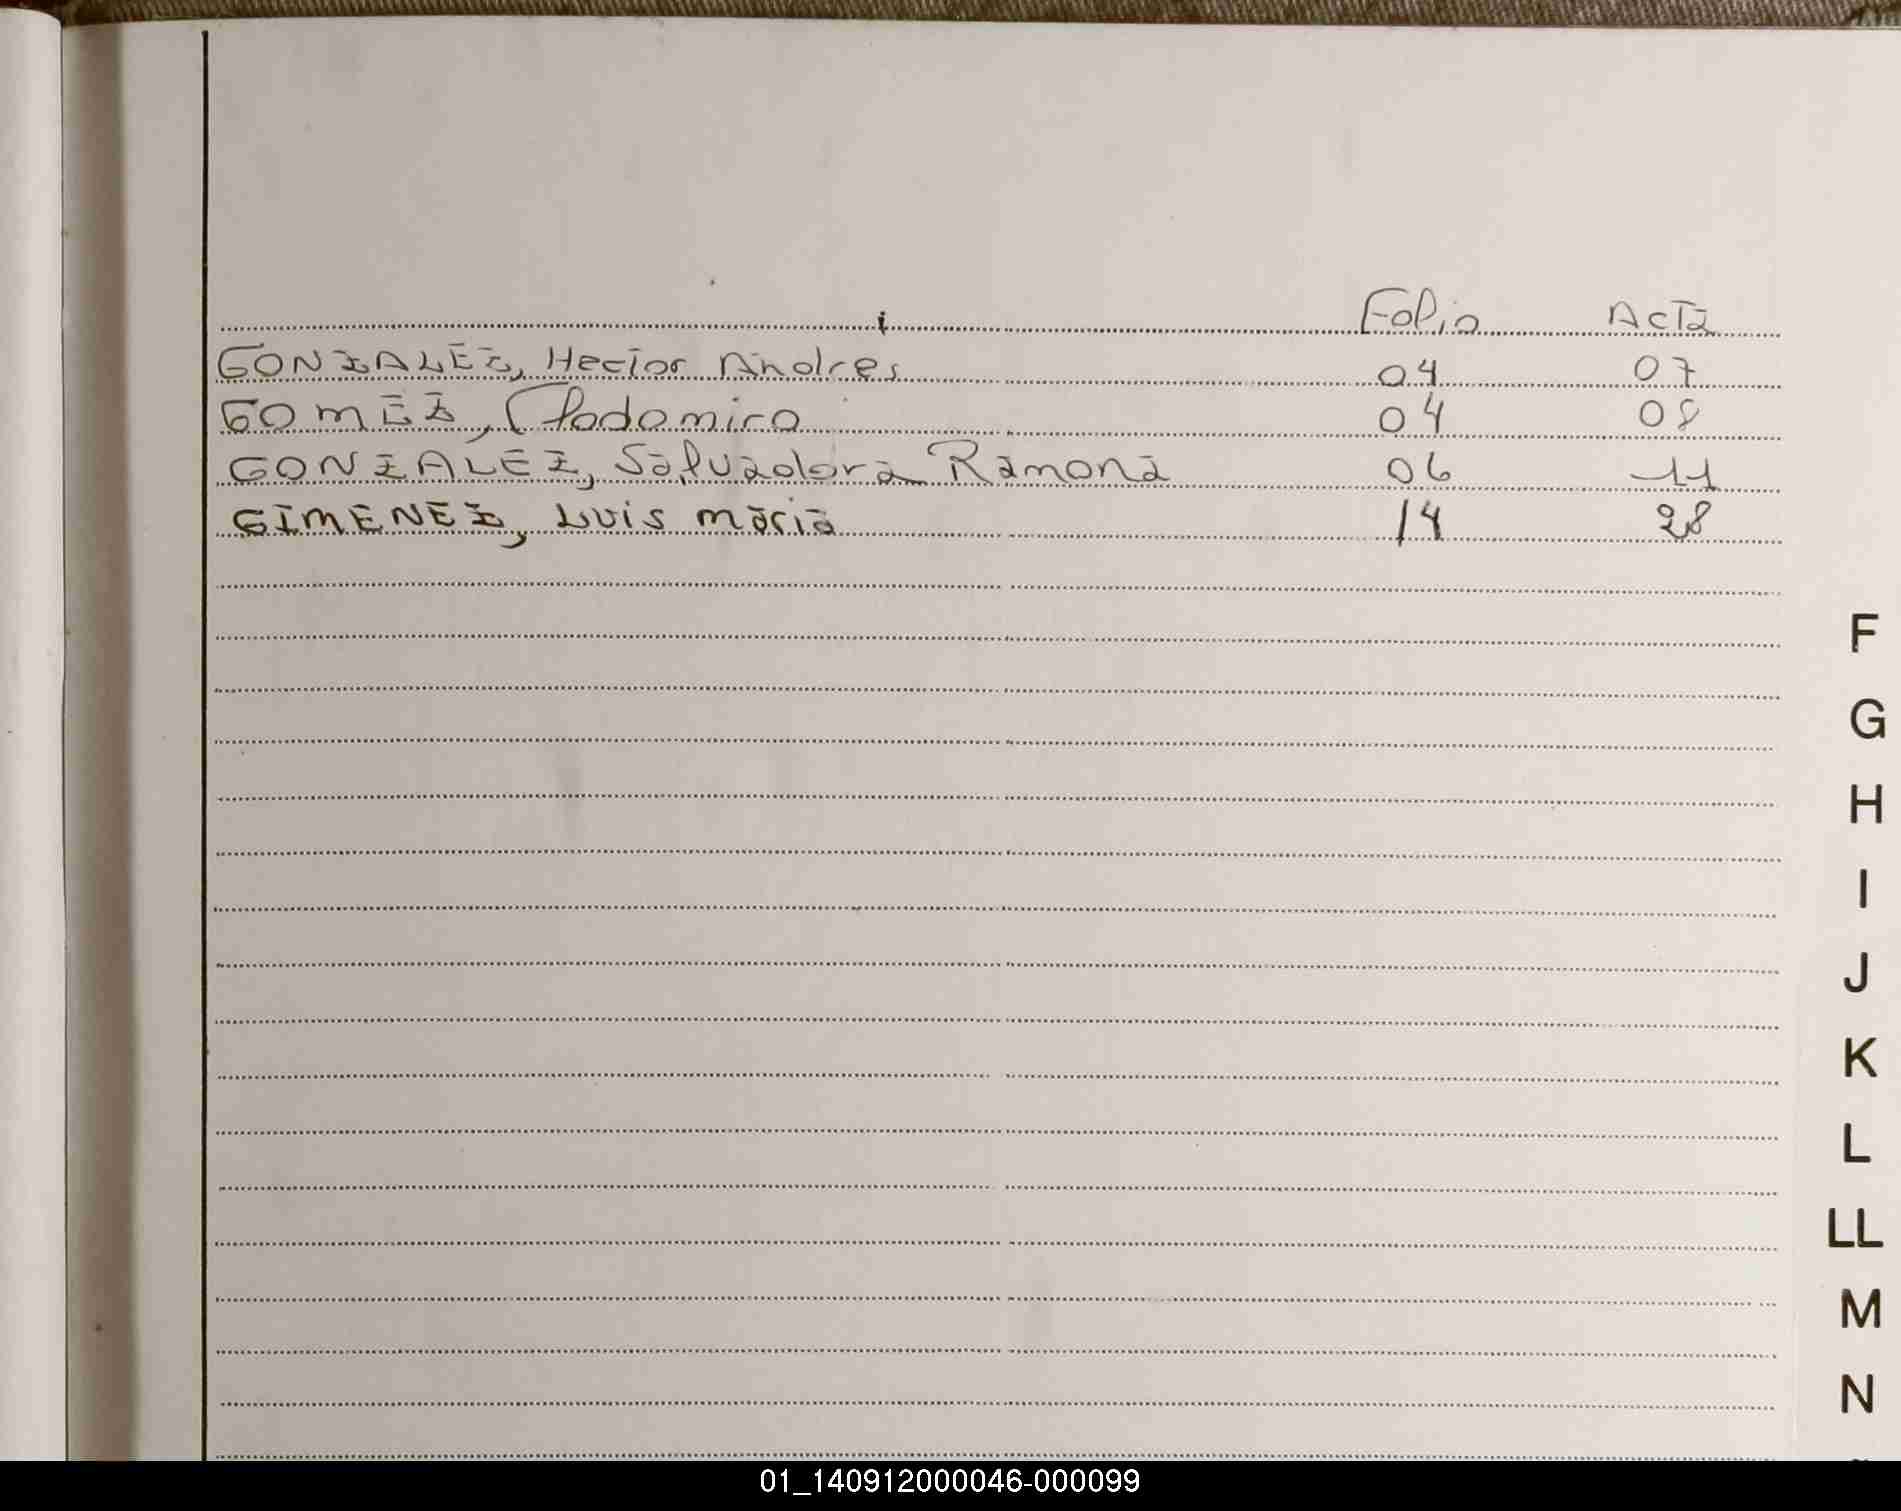 Folio Acta
GONZALEZ, Hector Andres 04 07
GOMEZ, Clodomiro 04 08
GONZALEZ, Salvadora Ramona 06 11
GIMENEZ, Luis maria 14 28
F
G
H
I
J
K
L
LL
M
N
01_140912000046-000099